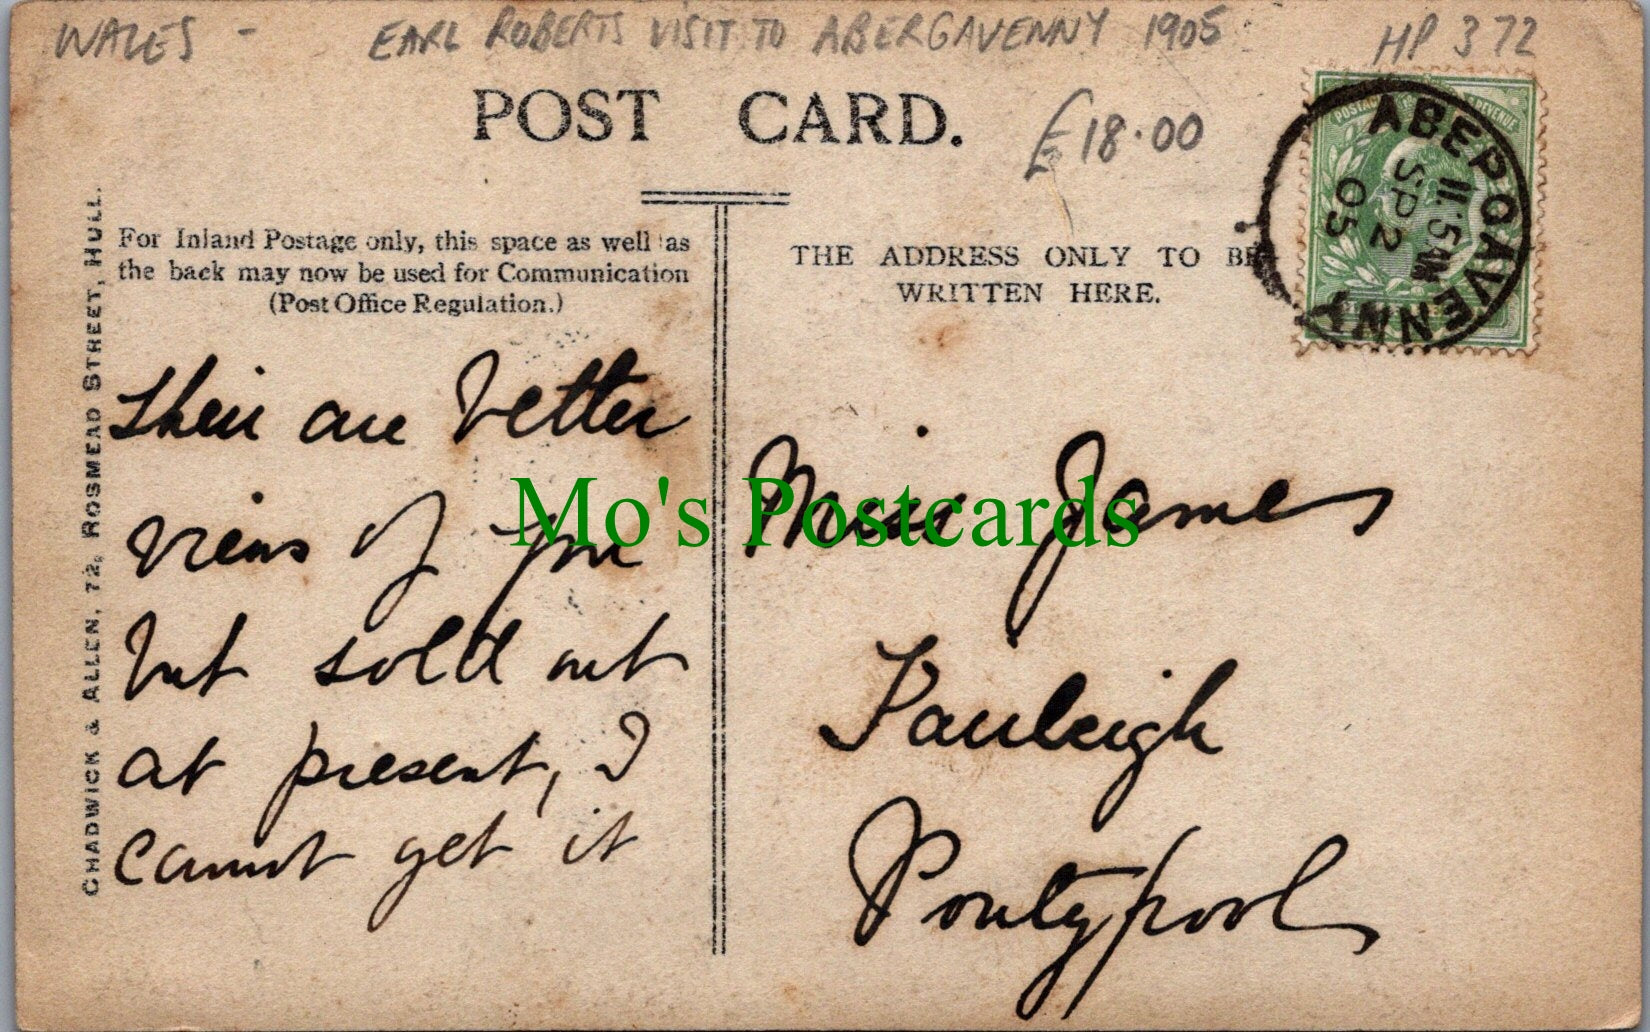 WALES - EARL ROBERTS VISIT TO ABERGAVENNY 1905 HP 372
POST CARD.
£18.00
POSTAGE REVENUE
ABERGAVENNY
11.5 AM
SP 2
05
For Inland Postage only, this space as well as
the back may now be used for Communication
(Post Office Regulation.)
THE ADDRESS ONLY TO BE
WRITTEN HERE.
CHADWICK & ALLEN, 72, ROSMEAD STREET, HULL.
Their are better
views of you
but sold out
at present, I
cannot get it
Miss James
Fauleigh
Pontypool
Mo's Postcards